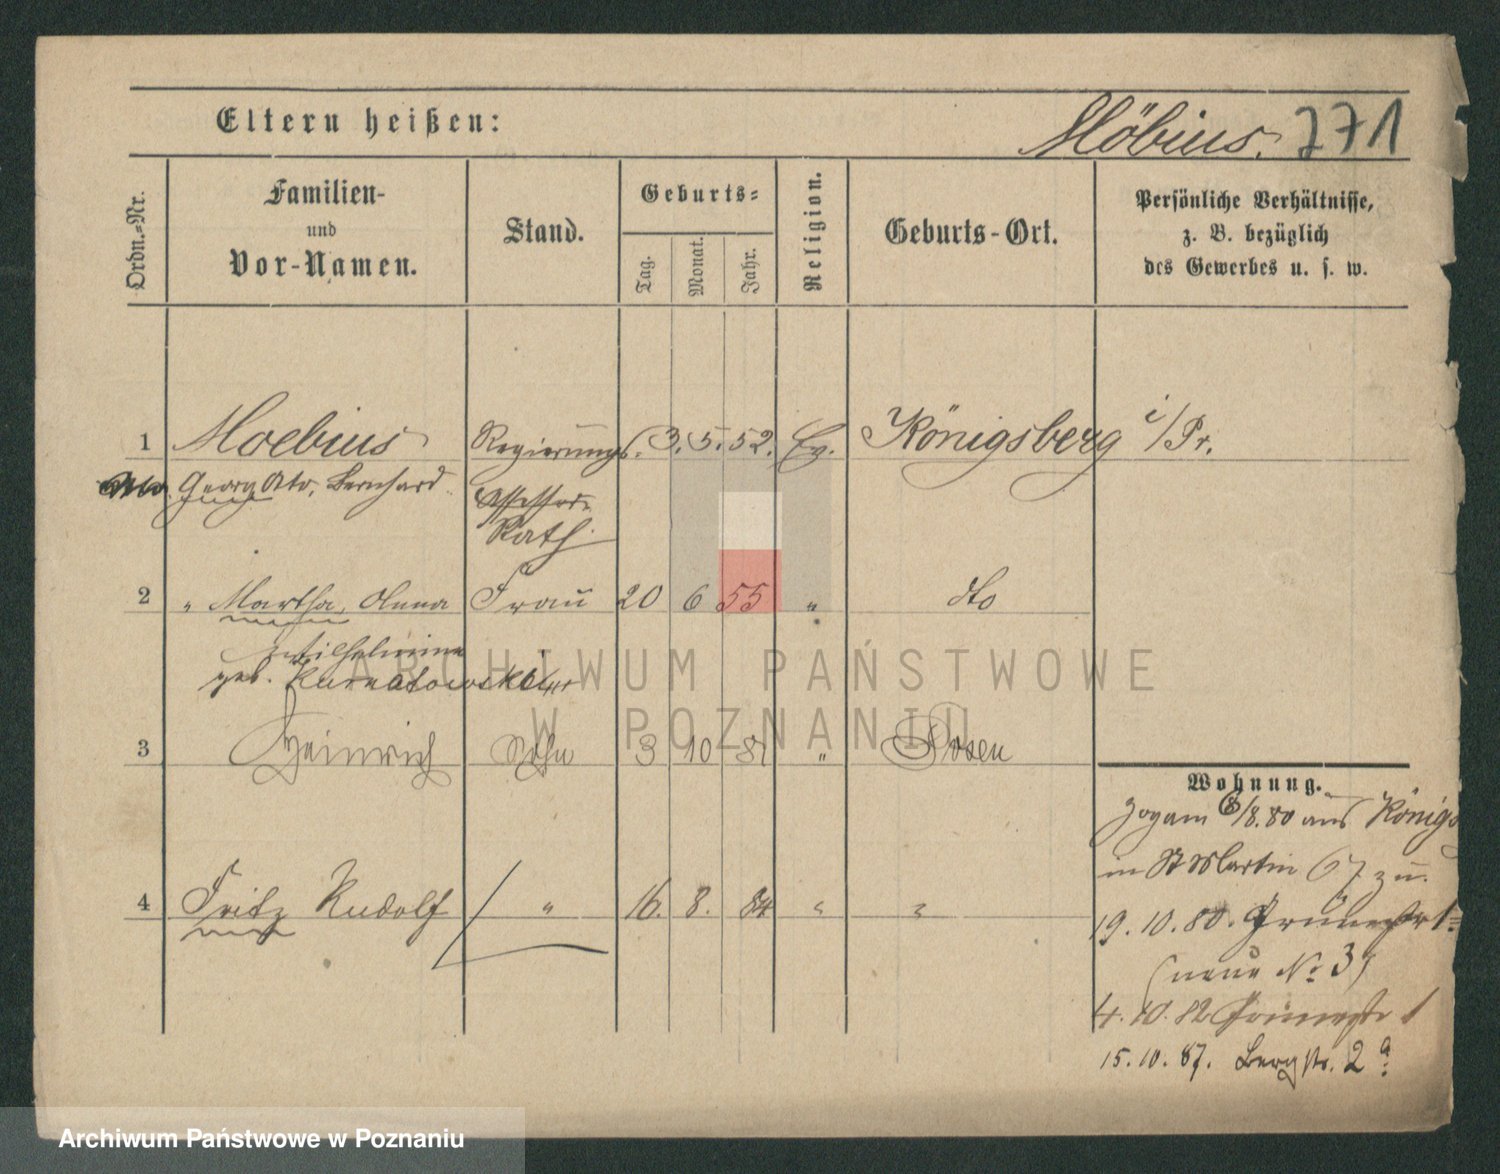 Eltern heißen:
Möbius. 271
Ordn.=Nr.
Familien-
und
Vor-Namen.
Stand.
Geburts=
Tag.
Monat.
Jahr.
Religion.
Geburts-Ort.
Persönliche Verhältnisse,
z. B. bezüglich
des Gewerbes u. s. w.
1 Moebius Regierungs. 3. 5. 52. Ev. Königsberg i/Pr.
Georg Otto, Bernhard Assessor
Rath
2 " Martha, Anna Frau 20 6 55 " dto
Wilhelmine
geb. Kurnatowski
3 Heinrich Sohn 3 10 81 " Posen
4 Fritz Rudolf " 16. 8. 84 " "
Wohnung.
zog am 6/8. 80 aus Königsb
in St Martin 67 zu.
19. 10. 80. Grünestr 1=
(neue No 3)
4. 10. 82 Grünestr 1
15. 10. 87. Bergstr. 2a
ARCHIWUM PAŃSTWOWE
W POZNANIU
Archiwum Państwowe w Poznaniu